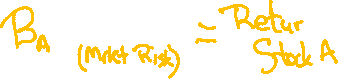 BA (Mrket Risk) = Retur
Stock A